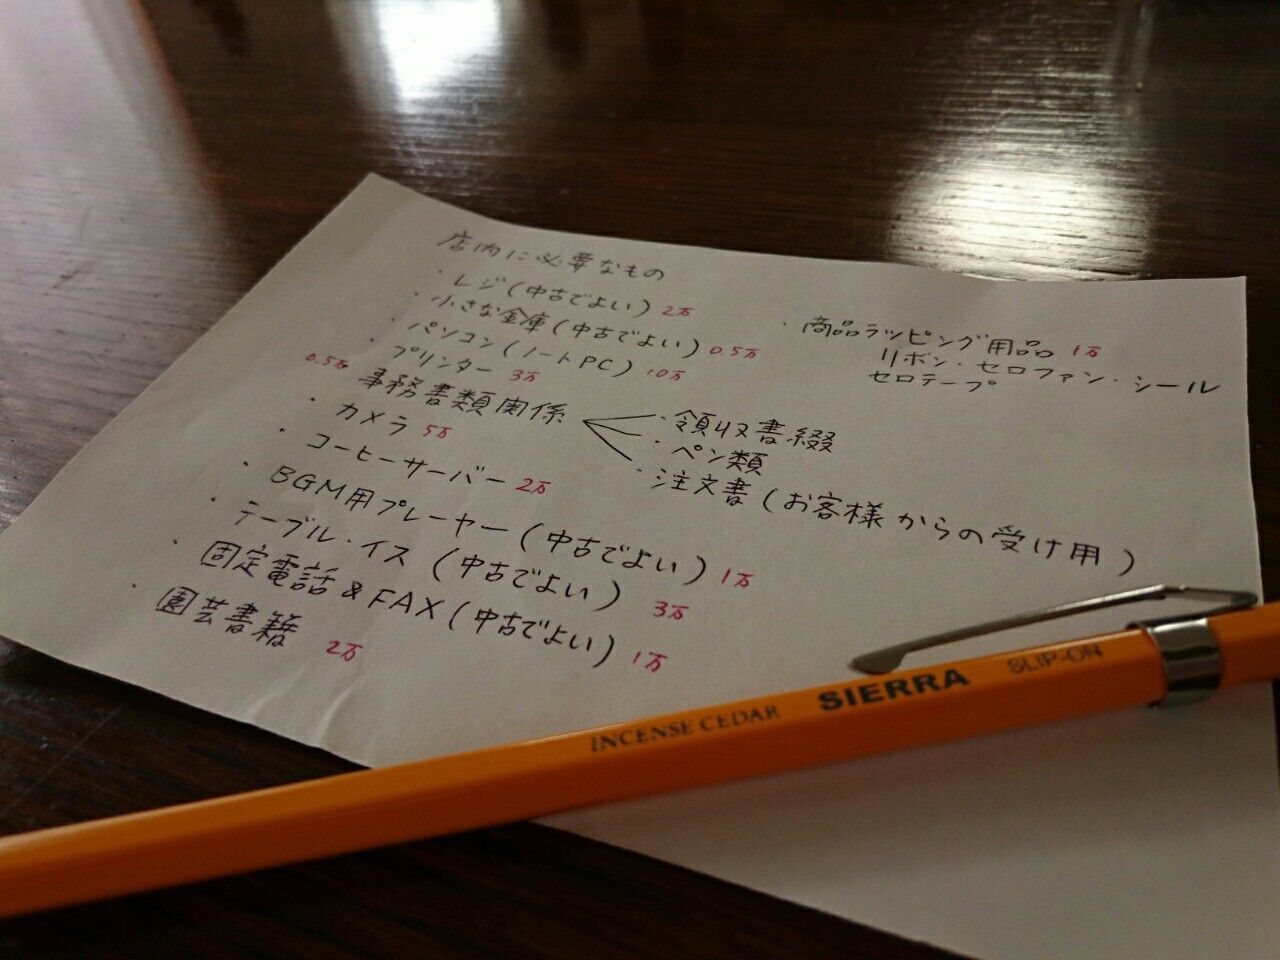 店内に必要なもの
・レジ(中古でよい) 2万
・小さな金庫(中古でよい) 0.5万
・パソコン(ノートPC) 10万
・プリンター 3万
0.5万 事務書類関係
・領収書綴
・ペン類
・注文書(お客様からの受け用)
・カメラ 5万
・コーヒーサーバー 2万
・BGM用プレーヤー(中古でよい) 1万
・テーブル・イス(中古でよい) 3万
・固定電話&FAX(中古でよい) 1万
・園芸書籍 2万
・商品ラッピング用品 1万
リボン・セロファン・シール
セロテープ
INCENSE CEDAR SIERRA SLIP-ON